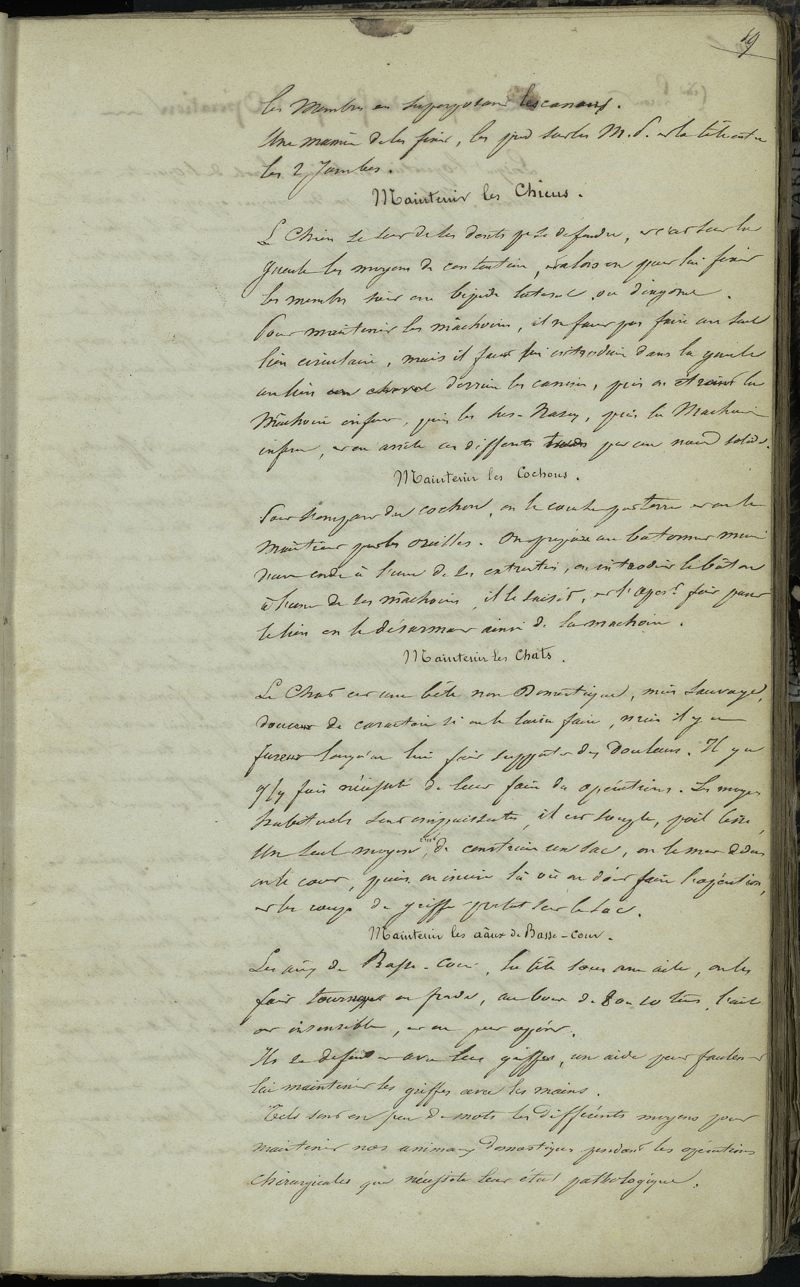 19
les Membres en superposant les canons.
Une manière de les fixer, les pieds sur les M. P. et la tête entre
les 2 Jambes.
Maintenir les Chiens.
Le Chien se sert de ses dents pr se défendre, et c'est sur la
gueule les moyens de contention, et alors on peut lui fixer
les membres soit en bipède latéral, ou diagonal.
Pour maintenir les mâchoires, il ne faut pas faire un seul
lien circulaire, mais il faut lui introduire dans la gueule
un lien derrière les canines, puis on étreint la
Mâchoire infer, puis les sus-Nasaux, puis la Machoire
infre, et on arrête ces différents tours par un nœud solide.
Maintenir les Cochons.
Pour s'emparer du cochon, on le couche par terre et on le
maintient par les oreilles. On prépare un baton muni
d'une corde à l'une de ses extrémités, on introduit le bâton
à l'une de ses mâchoires, il le saisit, et l'opert fait passer
le lien en le désarmant ainsi de la machoire.
Maintenir les Chats.
Le Chat est une bête non Domestique, mais Sauvage,
doux de caractère si on le laisse faire, mais il y
furieux lorsqu'on lui fait supporter des Douleurs. Il y a
q/q fois nécessité de leur faire des opérations. Les moyens
habituels sont impuissants, il est souple, poil lisse,
Un seul moyen, c'est de construire un sac, on le met dedans
on le coud, puis on incise là où on doit faire l'opération,
et les coups de griffe portent sur le sac.
Maintenir les aãux de Basse-Cour.
Les aũx de Basse-Cour, la tête sous une aile, on les
fait tourner en fronde, au bout de 8 ou 10 tours, l'ail
est insensible, et on peut opérer.
Ils se défendent avec leurs griffes, un aide peut facilemt
lui maintenir les griffes avec les mains.
Tels sont en peu de mots les différents moyens pour
maintenir nos animaux domestiques pendant les opérations
chirurgicales que nécessite leur état pathologique.